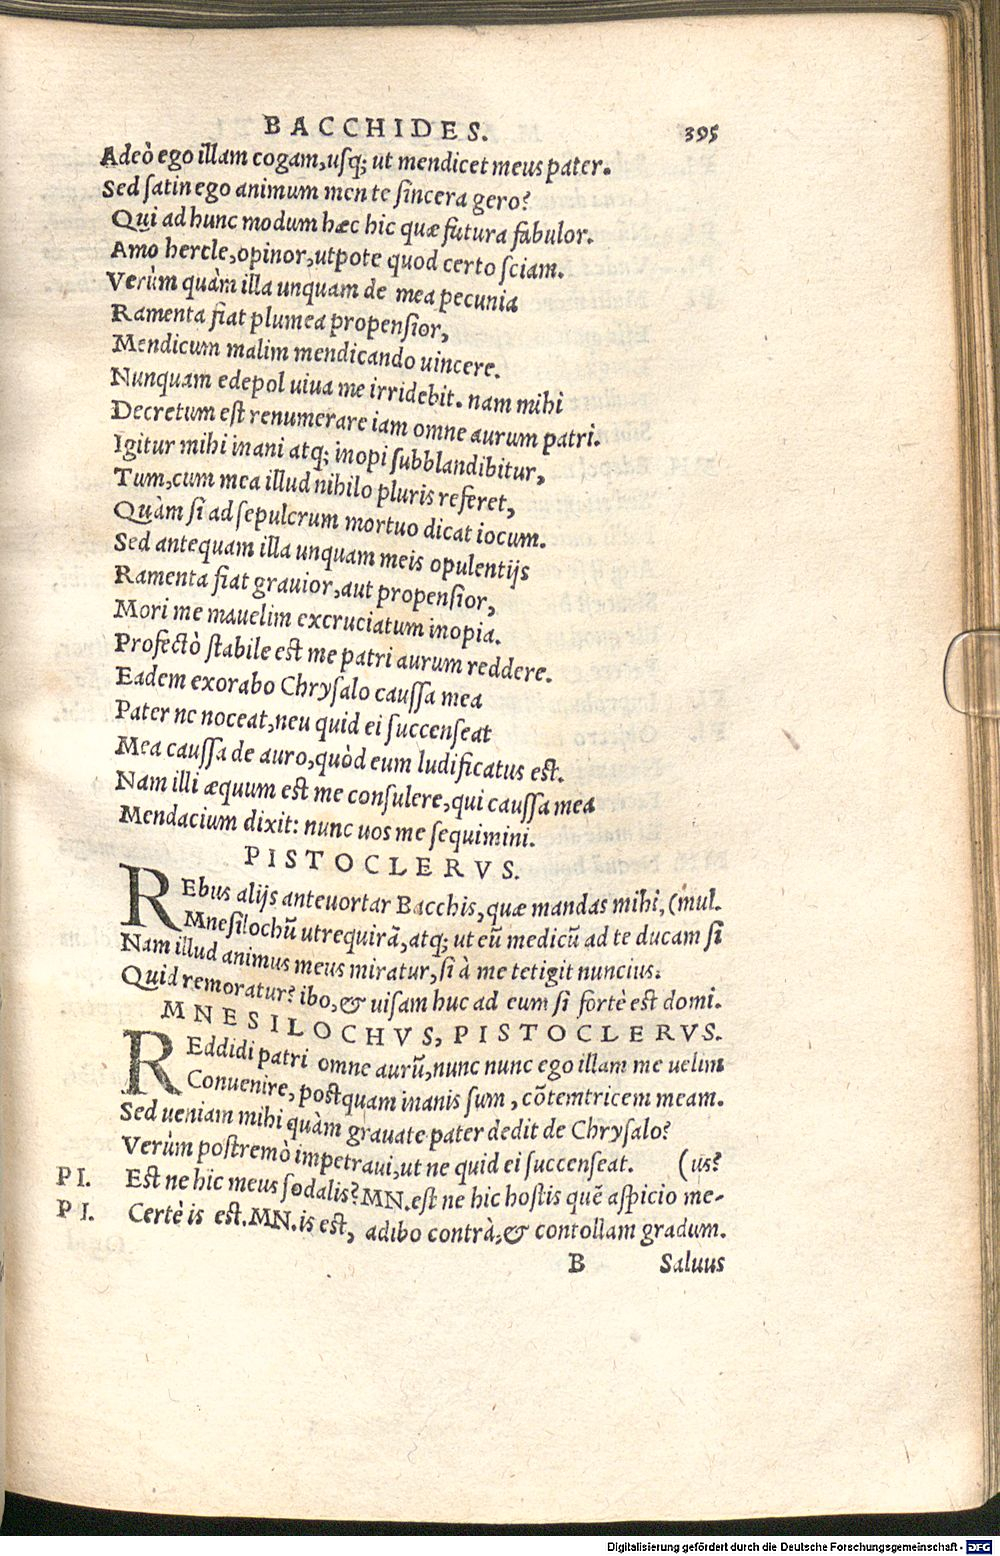 BACCHIDES. 395
Adeò ego illam cogam, usq; ut mendicet meus pater.
Sed satin ego animum mente sincera gero?
Qui ad hunc modum hæc hic quæ futura fabulor.
Amo hercle, opinor, utpote quod certo sciam.
Verùm quàm illa unquam de mea pecunia
Ramenta fiat plumea propensior,
Mendicum malim mendicando uincere.
Nunquam edepol uiua me irridebit. nam mihi
Decretum est renumerare iam omne aurum patri.
Igitur mihi inani atq; inopi subblandibitur,
Tum, cum mea illud nihilo pluris referet,
Quàm si ad sepulcrum mortuo dicat iocum.
Sed antequam illa unquam meis opulentijs
Ramenta fiat grauior, aut propensior,
Mori me mauelim excruciatum inopia.
Profectò stabile est me patri aurum reddere.
Eadem exorabo Chrysalo caussa mea
Pater ne noceat, neu quid ei succenseat
Mea caussa de auro, quòd eum ludificatus est.
Nam illi æquum est me consulere, qui caussa mea
Mendacium dixit: nunc uos me sequimini.
PISTOCLERVS.
REbus alijs anteuortar Bacchis, quæ mandas mihi, (mul.
Mnesilochũ ut requirã, atq; ut eũ medicũ ad te ducam si
Nam illud animus meus miratur, si à me tetigit nuncius.
Quid remoratur? ibo, & uisam huc ad eum si fortè est domi.
MNESILOCHVS, PISTOCLERVS.
REddidi patri omne aurũ, nunc nunc ego illam me uelim
Conuenire, postquam inanis sum, cõtemtricem meam.
Sed ueniam mihi quàm grauate pater dedit de Chrysalo?
Verùm postremò impetraui, ut ne quid ei succenseat. (us?
PI. Est ne hic meus sodalis? MN. est ne hic hostis quẽ aspicio me-
PI. Certè is est. MN. is est, adibo contrà, & contollam gradum.
B Saluus
Digitalisierung gefördert durch die Deutsche Forschungsgemeinschaft - DFG